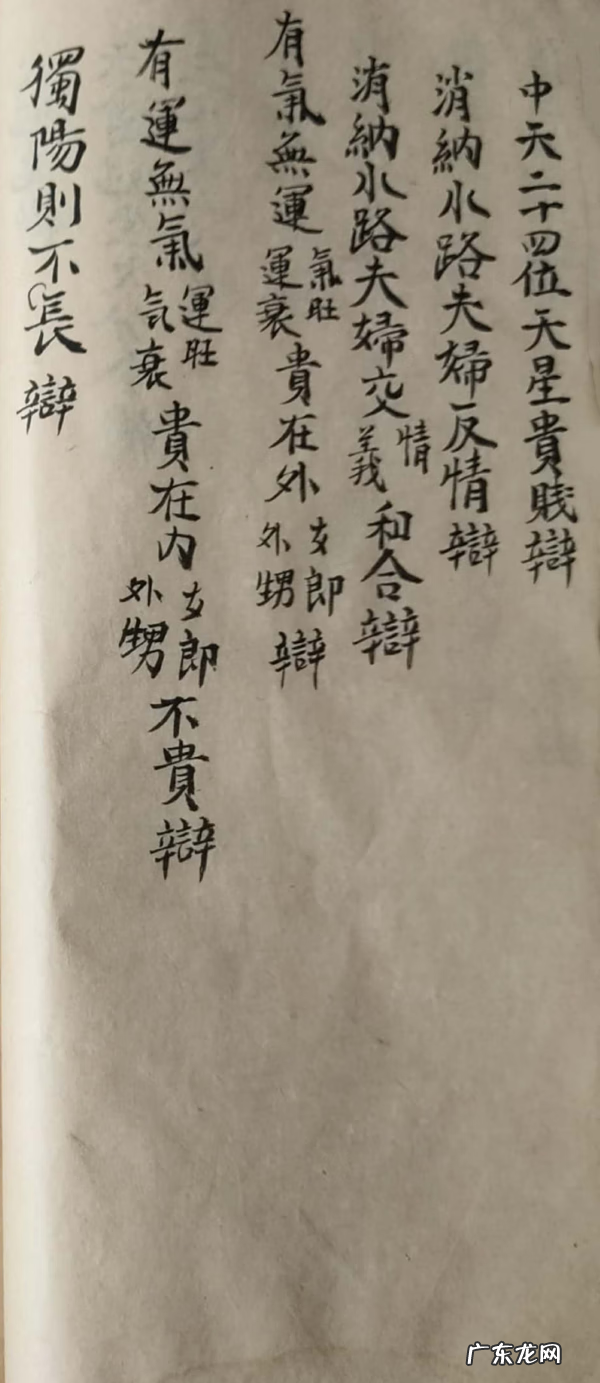 中天二十四位天星貴賤辯
消納水路夫婦反情辯
消納水路夫婦交情義和合辯
有氣無運氣旺運衰貴在外女郎外甥辯
有運無氣運旺气衰貴在内女郎外甥不貴辯
獨陽則不長辯
广东龙网